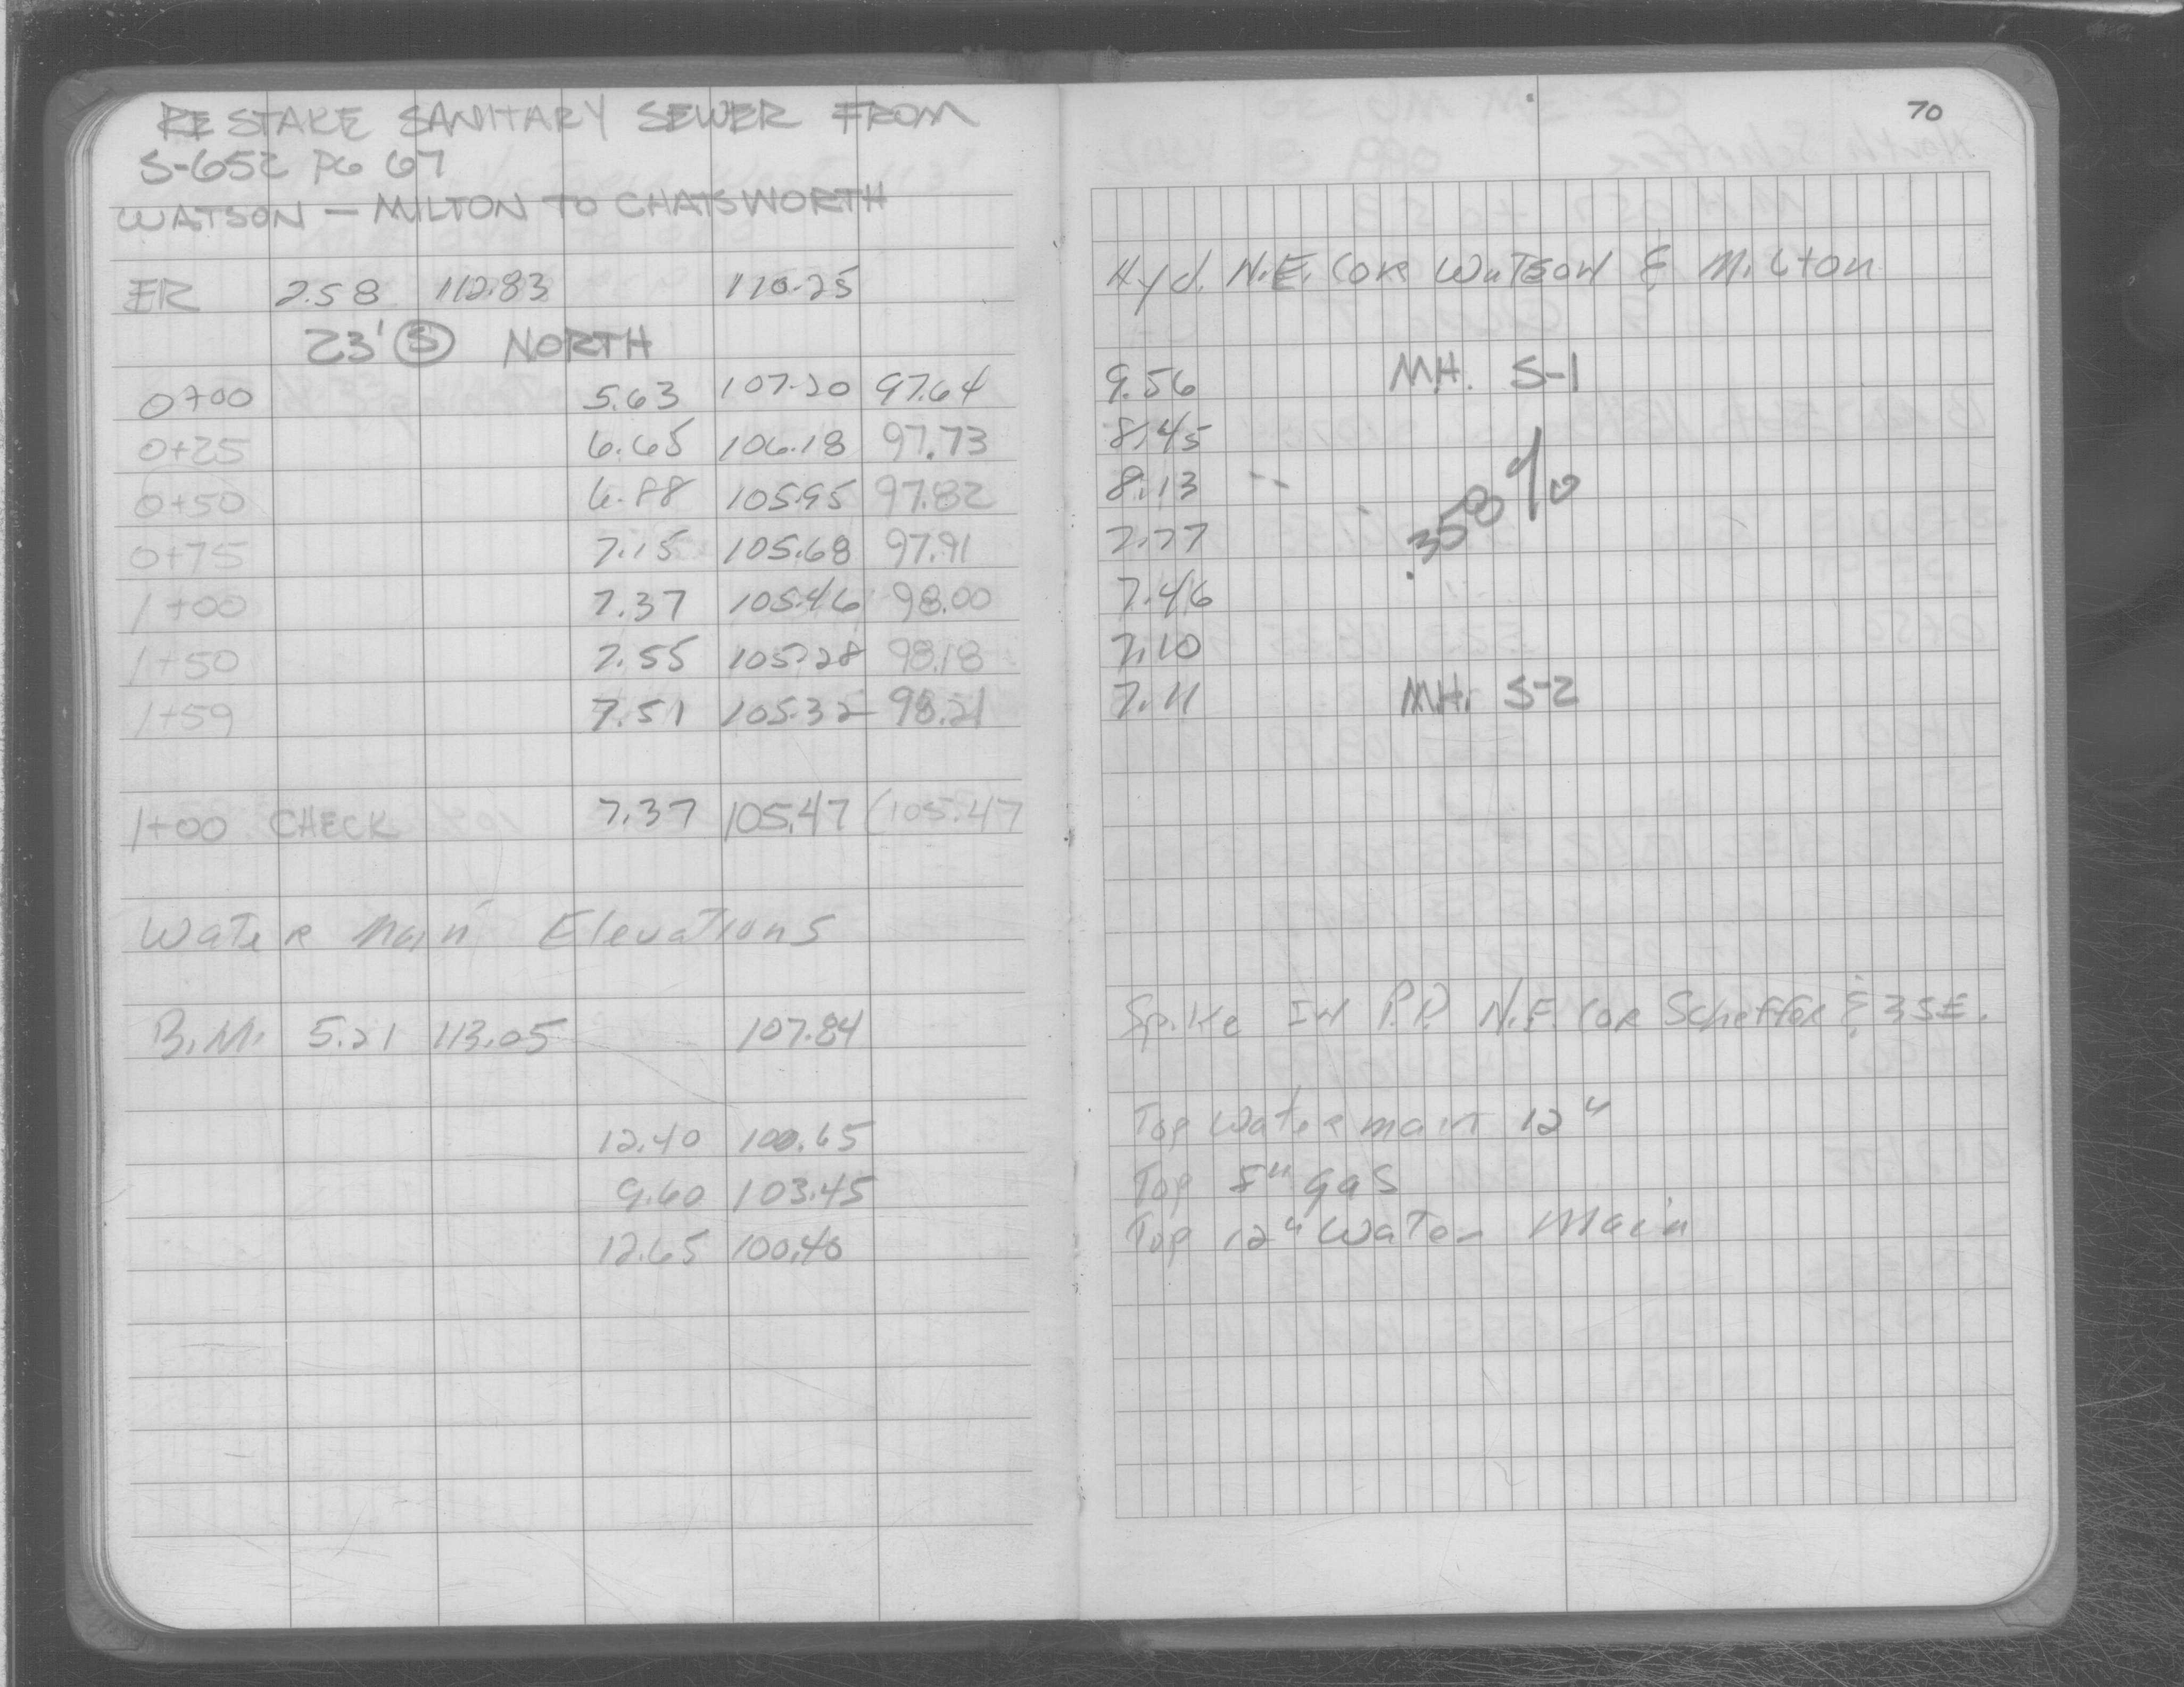 70
RE STAKE SANITARY SEWER FROM
S-652 PG 67
WATSON — MILTON TO CHATSWORTH
ER 2.58 112.83 110.25 Hyd. N.E. Cor Watson & Milton
23' (S) NORTH
0+00 5.63 107.20 97.64 9.56 M.H. S-1
0+25 6.65 106.18 97.73 8.45
0+50 6.88 105.95 97.82 8.13
.358%
0+75 7.15 105.68 97.91 7.77
1+00 7.37 105.46 98.00 7.46
1+50 7.55 105.28 98.18 7.10
1+59 7.51 105.32 98.21 7.11 M.H. S-2
1+00 CHECK 7.37 105.47 (105.47
Water Main Elevations
B.M. 5.21 113.05 107.84 Spike In P.P. N.E. Cor Scheffer & 35E.
12.40 100.65 Top Water main 12"
9.60 103.45 Top 8" gas
12.65 100.40 Top 12" Water Main